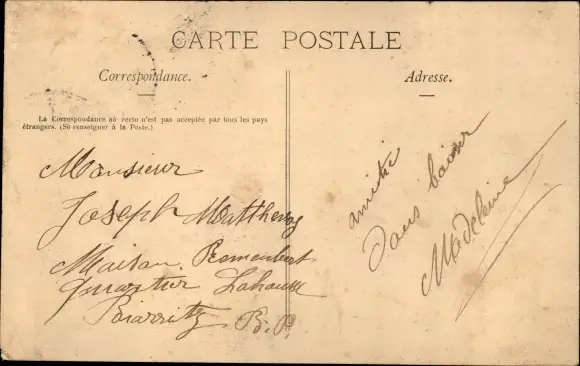 CARTE POSTALE
Correspondance.
Adresse.
La Correspondance au recto n'est pas acceptée par tous les pays
étrangers. (Se renseigner à la Poste.)
Monsieur
Joseph
Maison
quartier
Biarritz B. P.
amitié
Madeleine